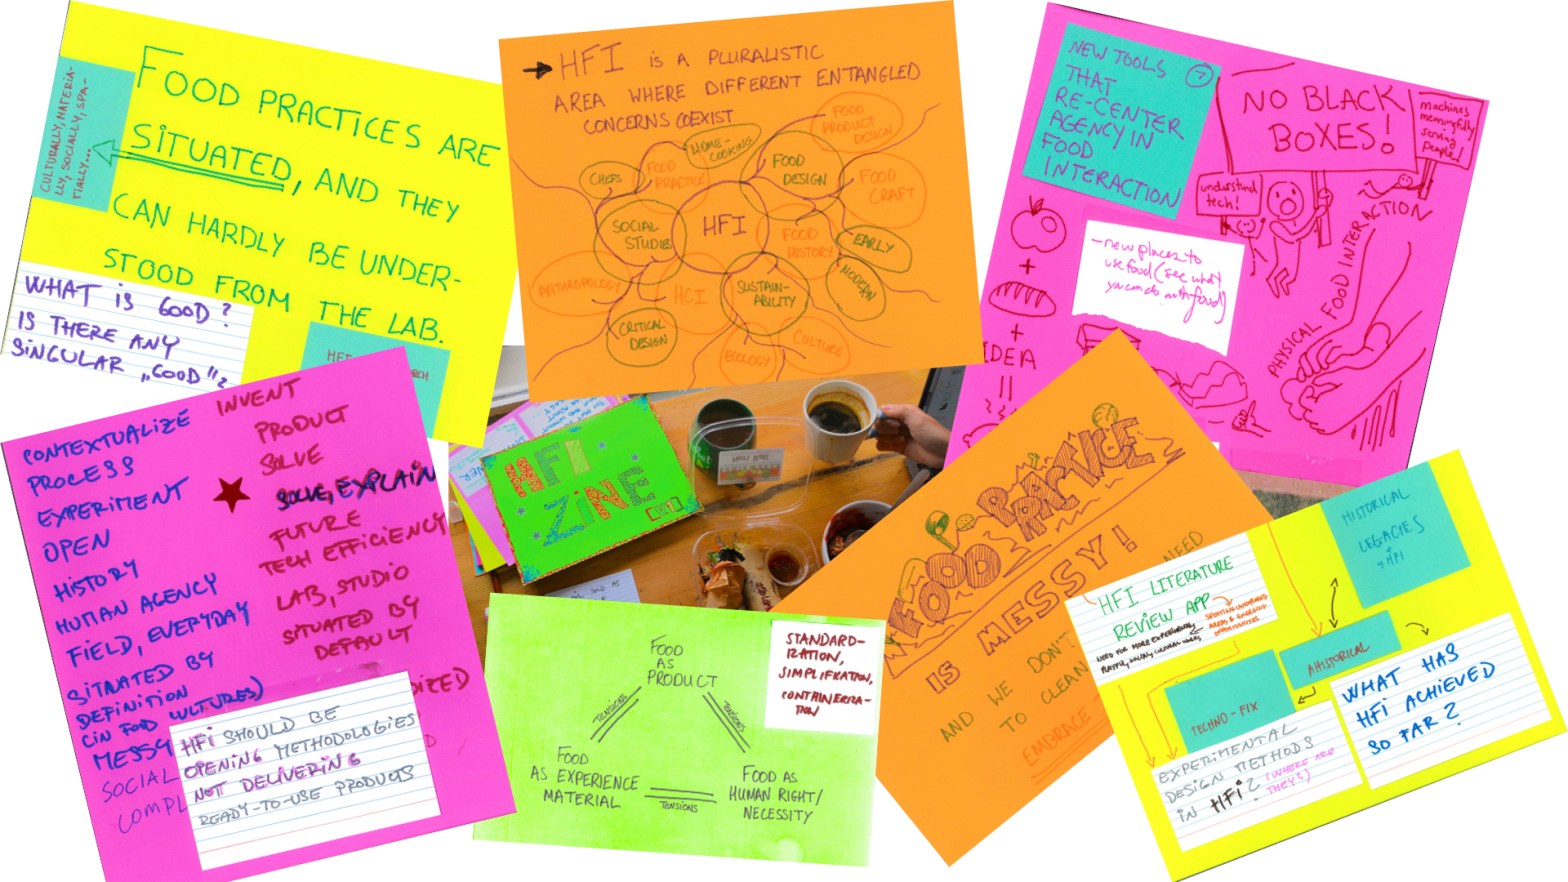 FOOD PRACTICES ARE
SITUATED, AND THEY
CAN HARDLY BE UNDER-
STOOD FROM THE LAB.
CULTURALLY, MATERIA-
LLY, SOCIALLY, SPA-
TIALLY...
WHAT IS GOOD?
IS THERE ANY
SINGULAR „GOOD"?
HFI IS A PLURALISTIC
AREA WHERE DIFFERENT ENTANGLED
CONCERNS COEXIST
HOME-
COOKING
FOOD
PRODUCT
DESIGN
CHEFS
FOOD
PRACTICE
FOOD
DESIGN
FOOD
CRAFT
SOCIAL
STUDIES
HFI
FOOD
HISTORY
EARLY
MODERN
ANTHROPOLOGY
HCI
SUSTAIN-
ABILITY
CRITICAL
DESIGN
ECOLOGY
CULTURE
NEW TOOLS
THAT
RE-CENTER
AGENCY IN
FOOD
INTERACTION
?
NO BLACK
BOXES!
machines
meaningfully
serving
people!
understand
tech!
- new places to
use food (see what
you can do with food)
+
+
IDEA
=
PHYSICAL FOOD INTERACTION
CONTEXTUALIZE
PROCESS
EXPERIMENT
OPEN
HISTORY
HUMAN AGENCY
FIELD, EVERYDAY
SITUATED BY
DEFINITION
(IN FOOD CULTURES)
MESSY
SOCIAL
COMPL
INVENT
PRODUCT
SOLVE
SOLVE, EXPLAIN
FUTURE
TECH EFFICIENCY
LAB, STUDIO
SITUATED BY
DEFAULT
HFI SHOULD BE
OPENING METHODOLOGIES
NOT DELIVERING
READY-TO-USE PRODUCTS
HFI
ZINE
FOOD
AS
PRODUCT
TENSIONS
TENSIONS
FOOD
AS EXPERIENCE
MATERIAL
TENSIONS
FOOD AS
HUMAN RIGHT/
NECESSITY
STANDARD-
IZATION,
SIMPLIFICATION,
CONTAINERIZA-
TION
FOOD PRACTICE
IS MESSY!
AND WE DON'T NEED
TO CLEAN
EMBRACE
HISTORICAL
LEGACIES
HFI
HFI LITERATURE
REVIEW APP
NEED FOR MORE EXPERIMENTAL
SPOTTING UNDERSERVED
AREAS & EMERGING
OPPORTUNITIES
AHISTORICAL
TECHNO-FIX
EXPERIMENTAL
DESIGN METHODS
IN HFI? (WHERE ARE
THEY?)
WHAT HAS
HFI ACHIEVED
SO FAR?